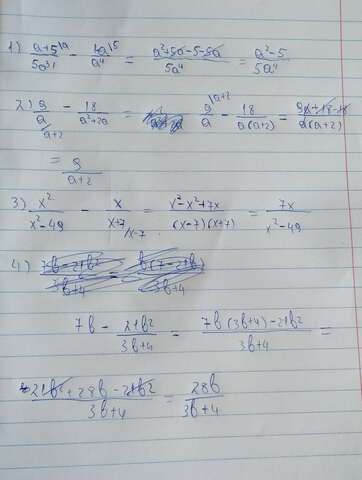 1) (a+5)/(5a³) - (4a)/(a⁴) = (a²+5a-5-5a)/(5a⁴) = (a²-5)/(5a⁴)
2) 9/a - 18/(a²+2a) = 9/a - 18/(a(a+2)) = (9a+18-18)/(a(a+2)) =
= 9/(a+2)
3) x²/(x²-49) - x/(x+7) = (x²-x²+7x)/((x-7)(x+7)) = 7x/(x²-49)
4)
7b - 21b²/(3b+4) = (7b(3b+4)-21b²)/(3b+4) =
(21b²+28b-21b²)/(3b+4) = 28b/(3b+4)